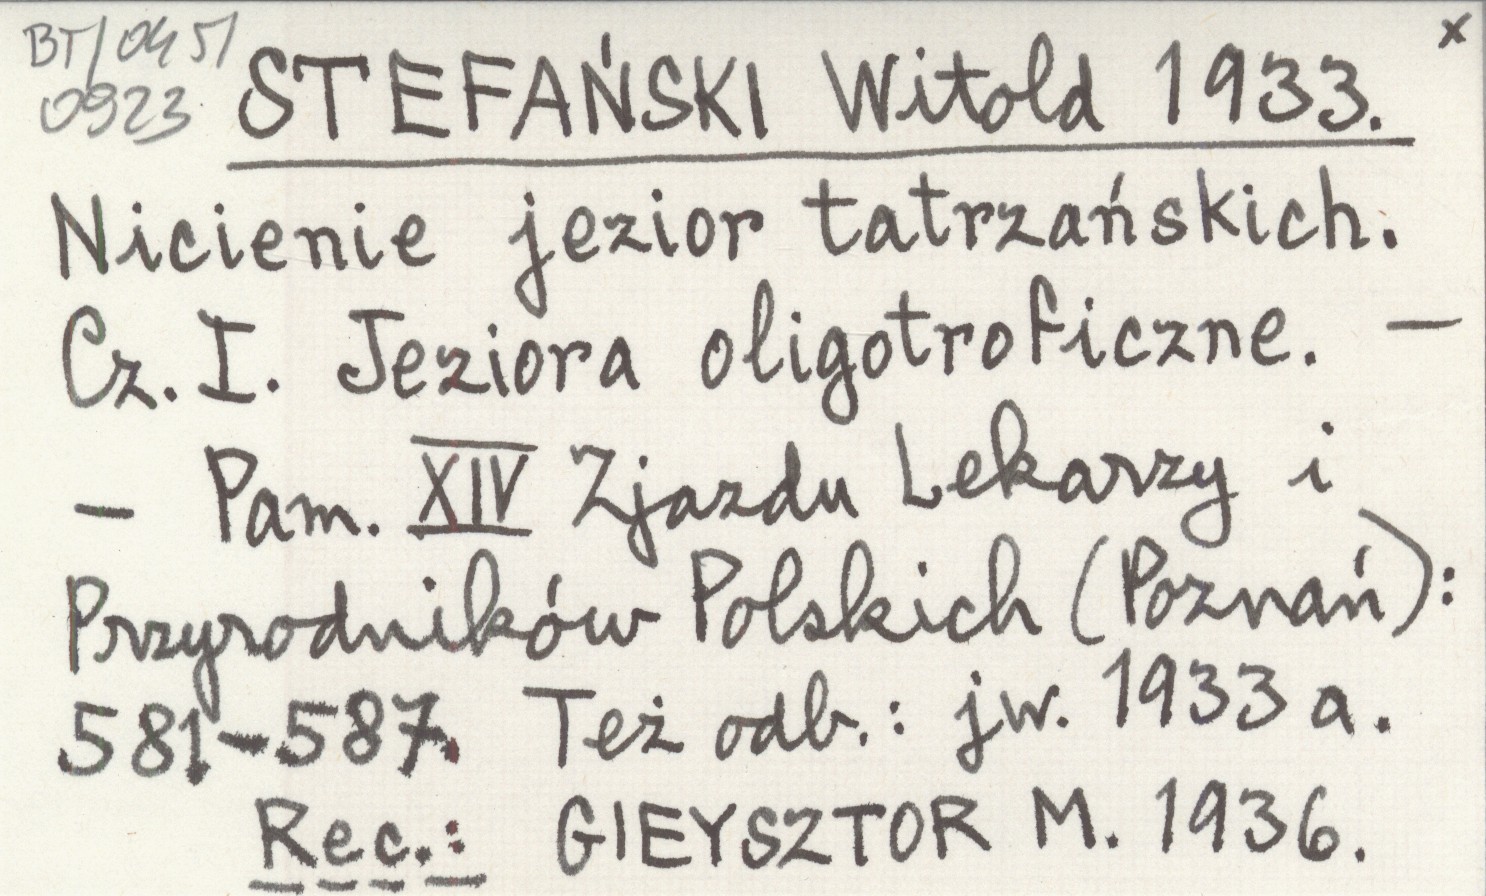 BT/045/
0923
x
STEFAŃSKI Witold 1933.
Nicienie jezior tatrzańskich.
Cz. I. Jeziora oligotroficzne. —
— Pam. XIV Zjazdu Lekarzy i
Przyrodników Polskich (Poznań):
581-587. Też odb.: jw. 1933 a.
Rec.: GIEYSZTOR M. 1936.